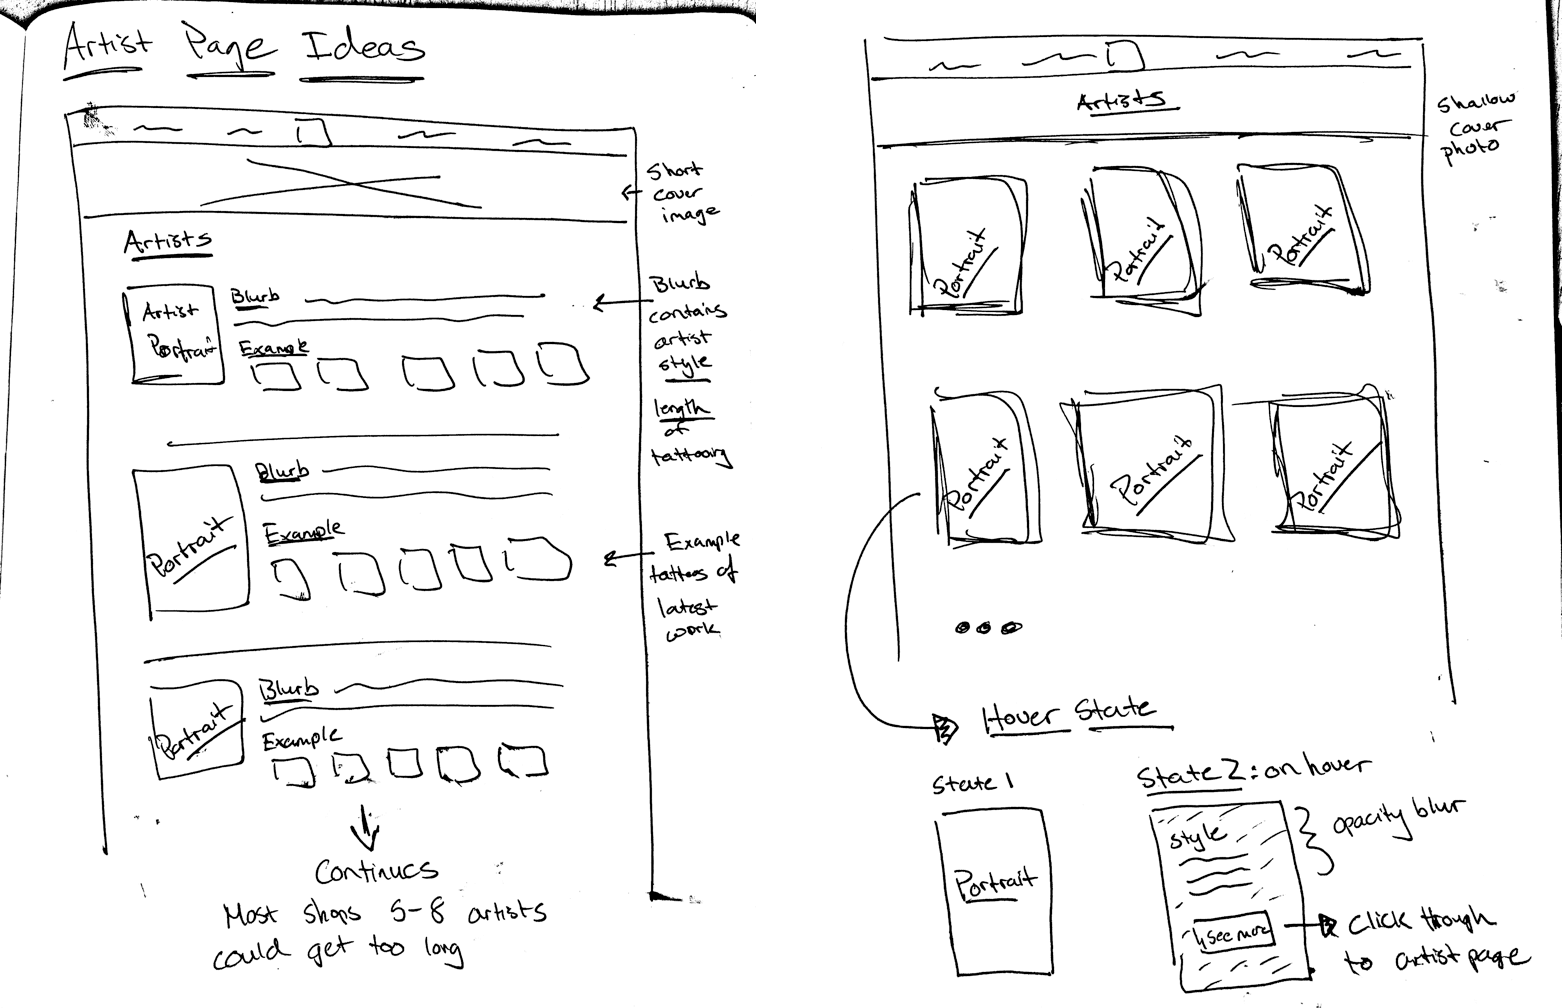 Artist Page Ideas
Short
cover
image
Artists
Artist
Portrait
Blurb
Example
Blurb
contains
artist
style
length
of
tattooing
Portrait
Blurb
Example
Example
tattoos of
latest
work
Portrait
Blurb
Example
Continues
Most shops 5-8 artists
could get too long
Artists
Shallow
cover
photo
Portrait
Portrait
Portrait
Portrait
Portrait
Portrait
Hover State
State 1
Portrait
State 2: on hover
Style
opacity blur
see more
Click through
to artist page